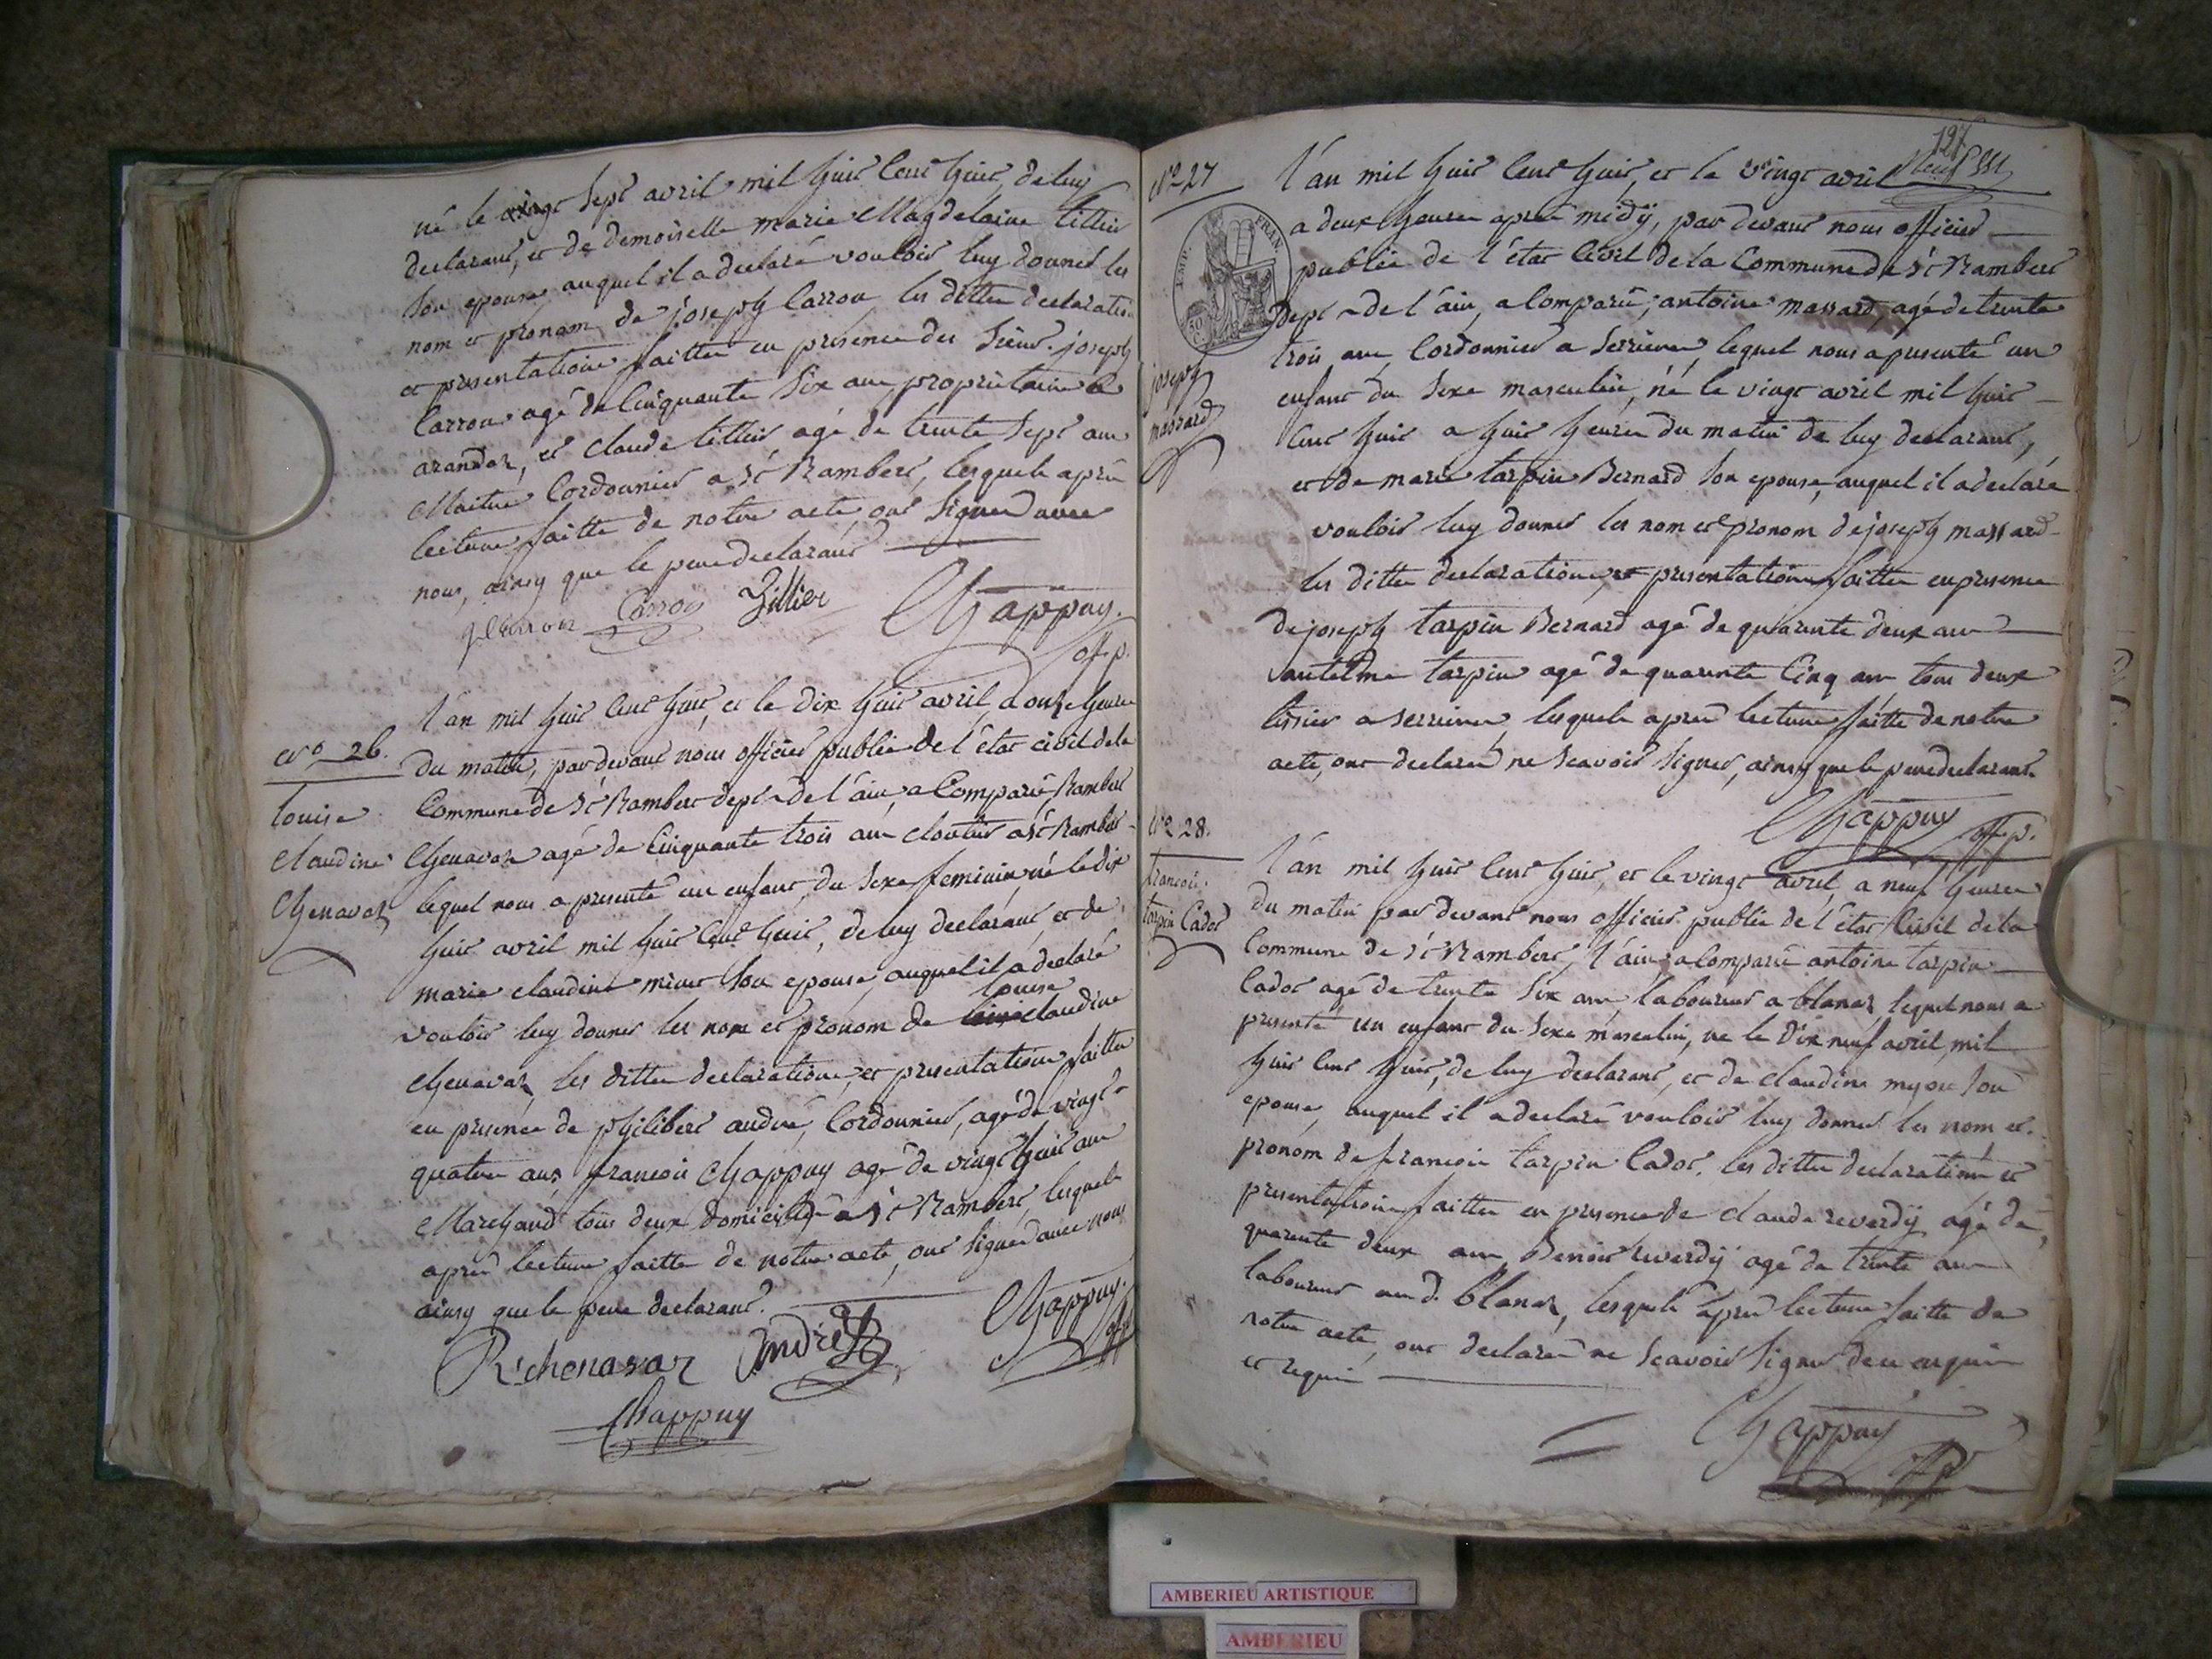 né le vingt Sept avril mil huit Cent huit, de luy
declarant, et de demoiselle marie Magdelaine tillier
son epouse auquel il a declaré vouloir luy donner les
nom et pronom de joseph Carron, les dittes declaration
et presentations faittes en presence des Sieurs joseph
Carron agé de Cinquante Six ans, propriétaire a
arandaz, et claude tillier agé de trente Sept ans
Maitre Cordonnier a St Rambert, lesquels après
lecture faitte de notre acte ont Signéd avec
nous, ainsy que le pere declarant
Carron Zillier Chappuy.
off. p.
N° 26.
Louise
Claudine
Chenavaz
l'an mil huit Cent huit, et le Dix huit avril, a onze heures
du matin, pardevant nous officier public de l'état civil dela
Commune de St Rambert dept de l'ain, a Comparü Rambert
Chenavaz agé de Cinquante trois ans cloutier a St Rambert
lequel nous a presenté un enfant, du Sexe feminin, né le dix
huit avril mil huit Cent huit, de luy declarant, et de
marie claudine son epouse, auquel il a declaré
louise
vouloir luy donner les nom et pronom de claudine
Chenavaz, les dittes declarations, et presentations faittes
en presence de philibert andré, Cordonnier, agé de vingt
quatre ans, francois Chappuy agé de vingt huit ans
Marchand tous deux domiciliés a St Rambert, lesquels
après lecture faitte de notre acte, ont Signéd avec nous
ainsy que le pere declarant.
R. chenavaz André Chappuy.
off p
Chappuy
127
N° 27
joseph
massard
IMP. FRAN.
l'an mil huit Cent huit, et le vingt avril
a deux heures après midÿ, par devant nous officier
public de l'état Civil de la Commune de St Rambert
dept de l'ain, a Comparü, antoine massard, agé de trente
trois ans, Cordonnier a Serrieres, lequel nous a presenté un
enfant du Sexe masculin, né le vingt avril mil huit
Cent huit a huit heures du matin de luy declarant,
et de marie tarpin Bernard son epouse, auquel il a declaré
vouloir luy donner les nom et pronom de joseph massard
les dittes declarations, et presentations faittes en presence
de joseph tarpin Bernard agé de quarante deux ans
antelme tarpin agé de quarante Cinq ans tous deux
tissier a serrieres, lesquels après lecture faitte de notre
acte, ont declaréd ne Scavoir Signer, ainsy que le pere declarant.
Chappuy off p.
N° 28.
francois
tarpin Cador
l'an mil huit Cent huit, et le vingt avril, a neuf heures
du matin par devant nous officier public de l'état Civil de la
Commune de St Rambert, l'ain, a Comparü antoine tarpin
Cador agé de trente Six ans laboureur a blanaz lequel nous a
presenté un enfant du Sexe masculin, né le Dix neuf avril, mil
huit Cent huit, de luy declarant, et de claudine son
epouse, auquel il a declaré vouloir luy donner les nom et
pronom de francois tarpin Cador. les dittes declarations et
presentations faittes en presence de claude reverdÿ agé de
quarante deux ans, Benoit reverdÿ agé de trente ans
laboureurs aud. blanaz, lesquels après lecture faitte de
notre acte, ont declaréd ne Scavoir Signer de ce enquis
et requis
Chappuy
off p
AMBERIEU ARTISTIQUE
AMBERIEU